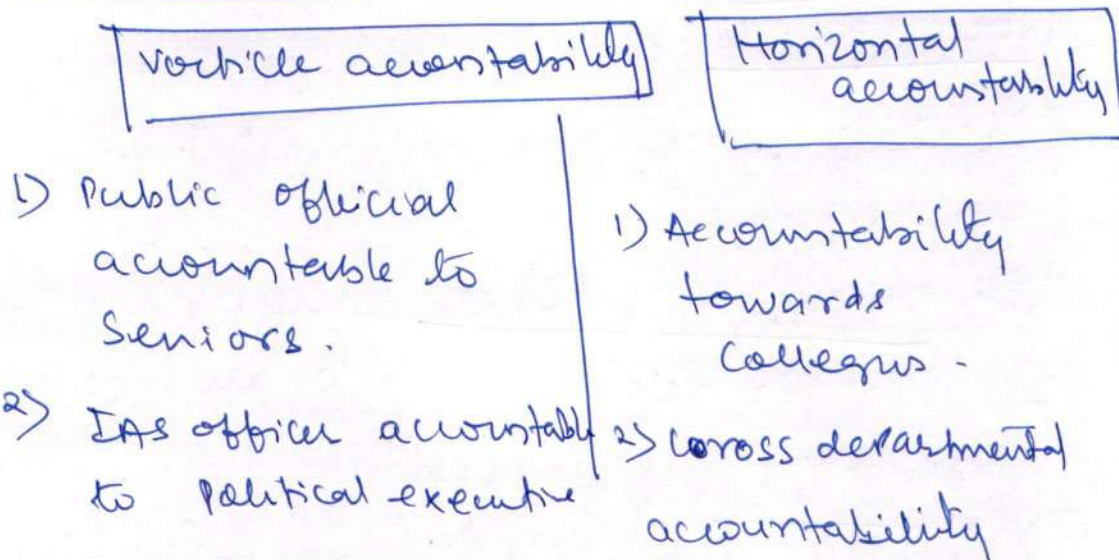 Verticle accountability
1) Public official
accountable to
Seniors.
2) IAS officer accountable
to Political executive
Horizontal
accountability
1) Accountability
towards
collegus.
2) Cross departmental
accountability